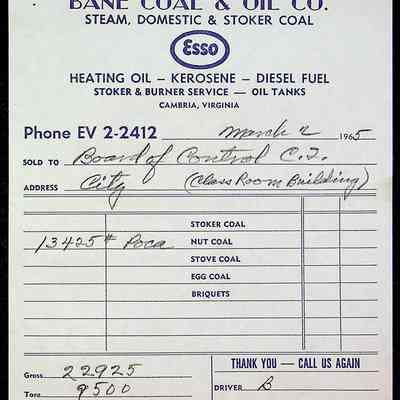 BANE COAL & OIL CO.
STEAM, DOMESTIC & STOKER COAL
Esso
HEATING OIL — KEROSENE — DIESEL FUEL
STOKER & BURNER SERVICE — OIL TANKS
CAMBRIA, VIRGINIA
Phone EV 2-2412 March 2 1965
SOLD TO Board of Control C.I.
ADDRESS City (Class Room Building)
STOKER COAL
13425# Poca NUT COAL
STOVE COAL
EGG COAL
BRIQUETS
Gross 22925 THANK YOU — CALL US AGAIN
Tare 9500 DRIVER B